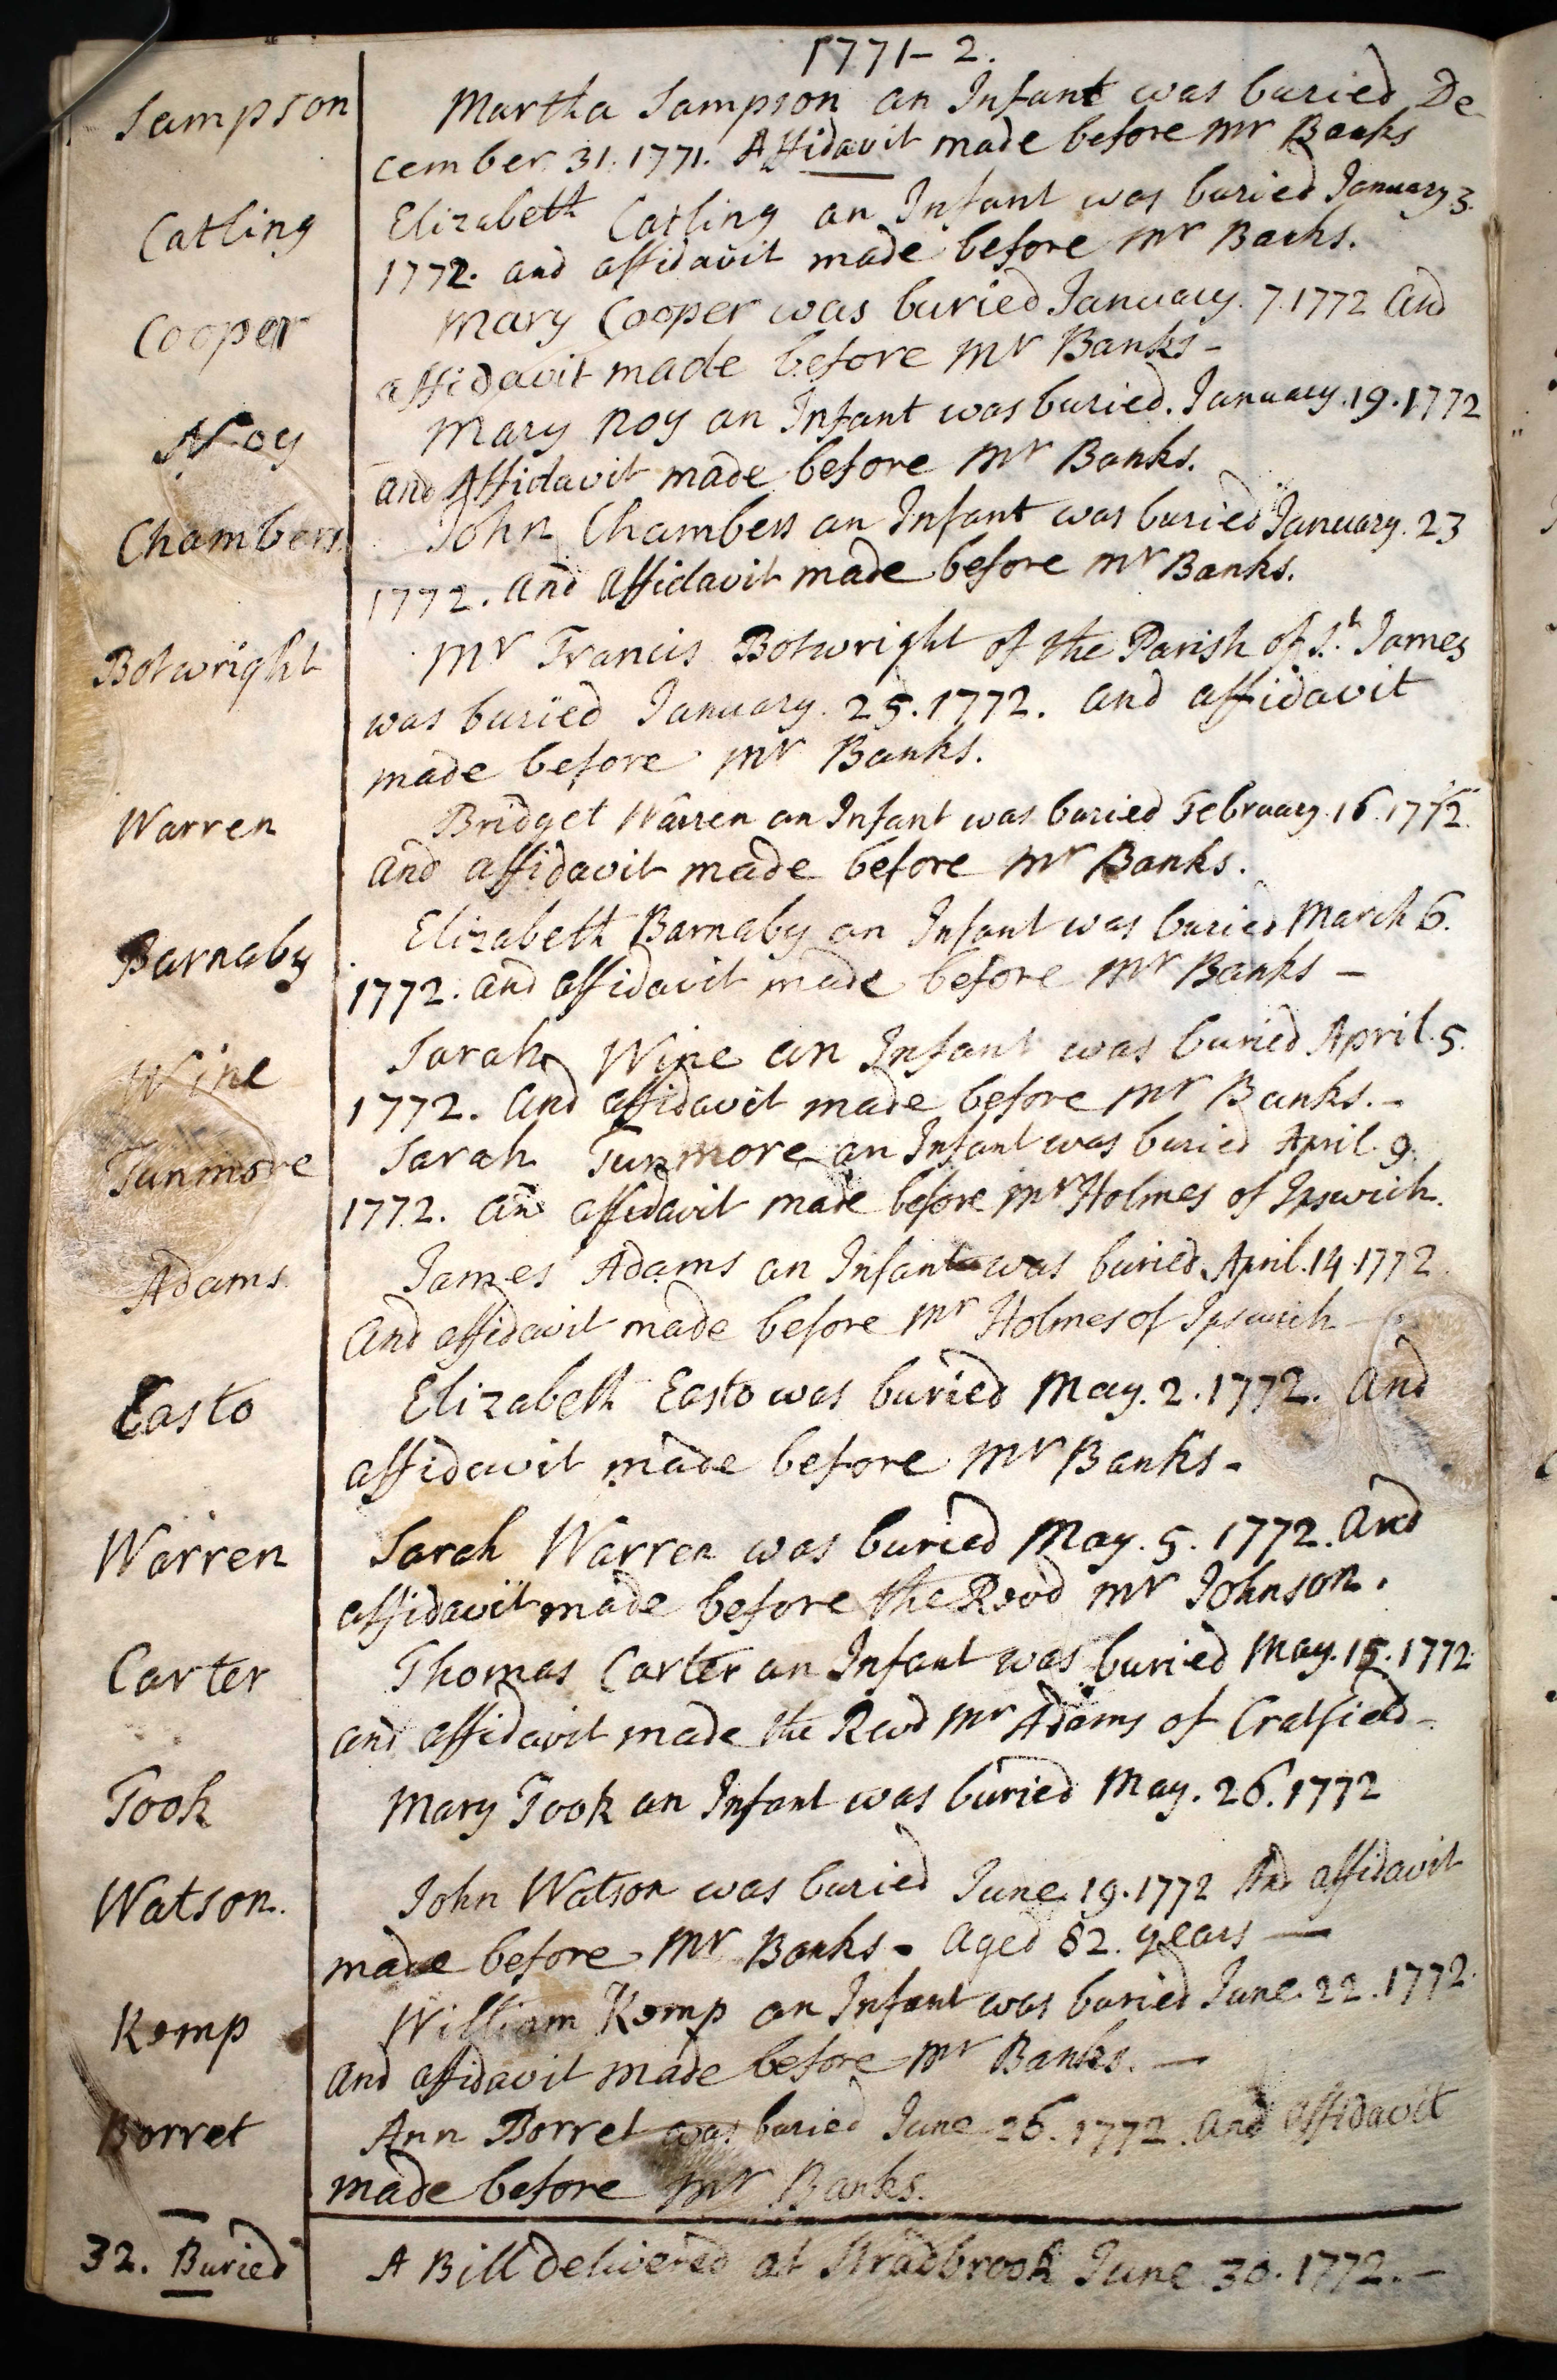 1771-2.
Sampson Martha Sampson an Infant was buried De
cember 31. 1771. Affidavit made before Mr Banks
Catling Elizabeth Catling an Infant was buried January 3.
1772. and affidavit made before Mr Banks.
Cooper Mary Cooper was buried January. 7. 1772 and
affidavit made before Mr Banks-
Noy Mary Noy an Infant was buried. January. 19. 1772
and Affidavit made before Mr Banks.
Chambers John Chambers an Infant was buried January. 23
1772. and affidavit made before Mr Banks.
Botwright Mr Francis Botwright of the Parish of St. James
was buried January. 25. 1772. and affidavit
made before Mr Banks.
Warren Bridget Warren an Infant was buried February. 16. 1772.
and affidavit made before Mr Banks.
Barnaby Elizabeth Barnaby an Infant was buried March 6.
1772. and affidavit made before Mr Banks -
Wine Sarah Wine an Infant was buried April. 5.
1772. and affidavit made before Mr Banks. -
Tunmore Sarah Tunmore an Infant was buried April. 9.
1772. an affidavit made before Mr Holmes of Ipswich.
Adams. James Adams an Infant was buried April. 14. 1772
and affidavit made before Mr Holmes of Ipswich -
Easto Elizabeth Easto was buried May. 2. 1772. and
affidavit made before Mr Banks -
Warren Sarah Warren was buried May. 5. 1772. and
affidavit made before the Revd Mr Johnson.
Carter Thomas Carter an Infant was buried May. 15. 1772
and affidavit made the Revd Mr Adams of Cratfield -
Took Mary Took an Infant was buried May. 26. 1772
Watson. John Watson was buried June. 19. 1772 And affidavit
made before Mr Banks - aged 82. years —
Kemp William Kemp an Infant was buried June. 22. 1772.
and affidavit made before Mr Banks. —
Borret Ann Borret was buried June 26. 1772. and affidavit
made before Mr Banks.
32. Buried A Bill delivered at Stradbrook June 30. 1772. -